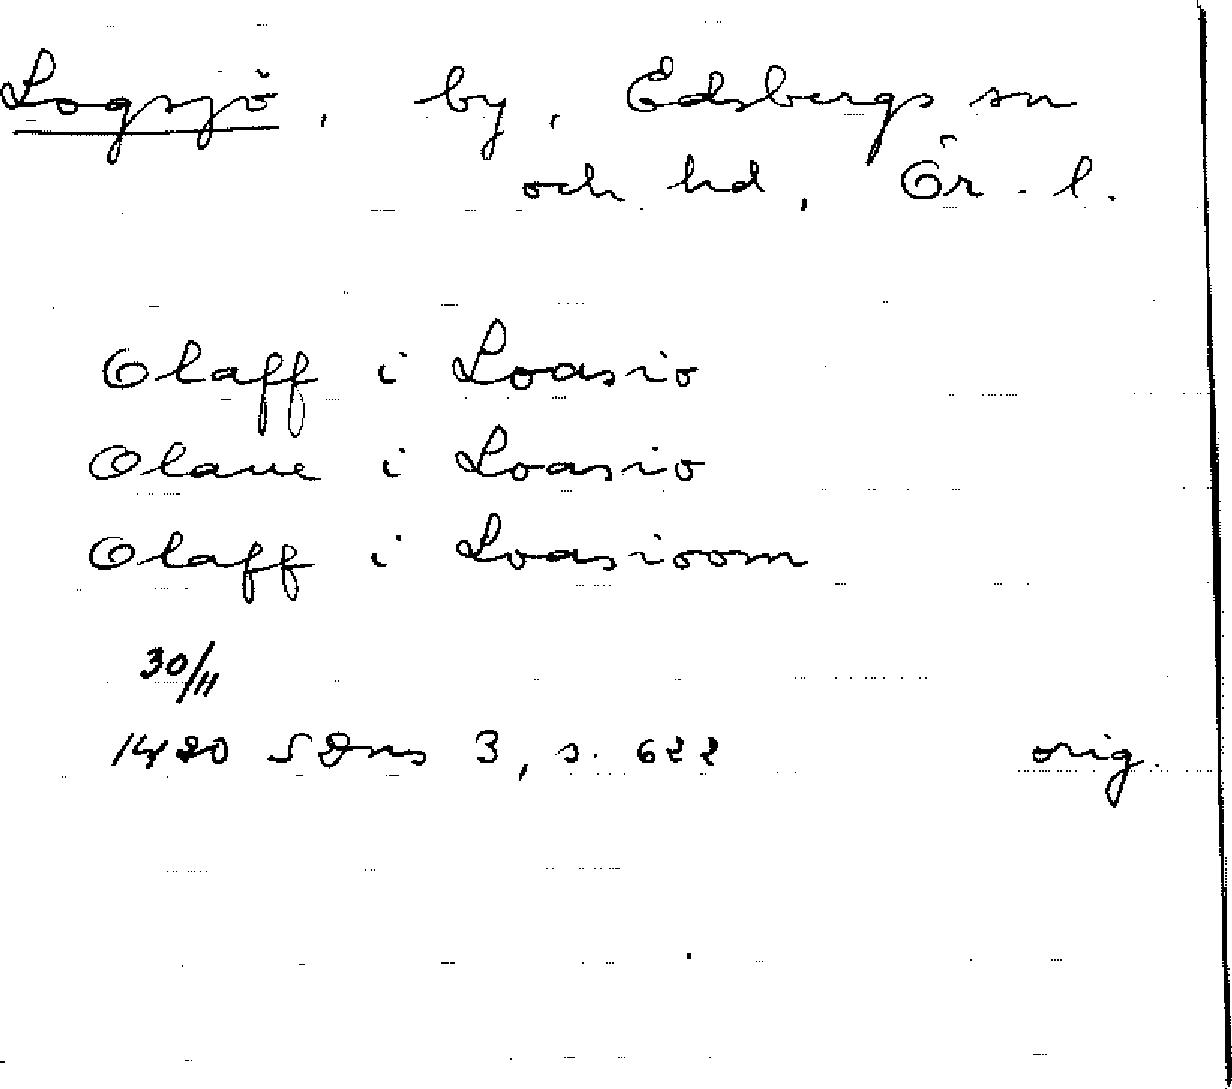 Logsjö, by, Edsbergs sn
och hd, Ör. l.
Olaff i Loasio
Olaue i Loasio
Olaff i Loasioom
30/11
1420 SDns 3, s. 622 orig.